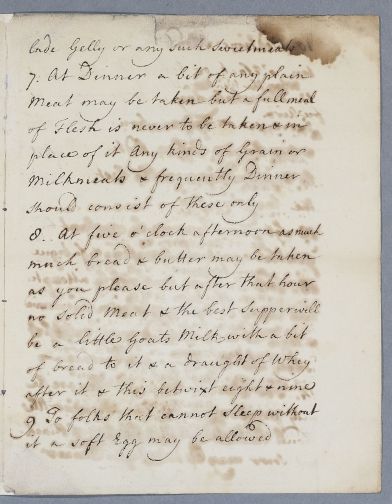 lade Gelly or any such Sweetmeats
7. At Dinner a bit of any plain
Meat may be taken but a full meal
of Flesh is never to be taken & in
place of it Any kinds of Grain or
Milkmeats & frequently Dinner
should consist of these only
8. At five o'clock afternoon as much
much bread & butter may be taken
as you please but after that hour
no solid Meat & the best Supper will
be a little Goats Milk with a bit
of bread to it & a draught of Whey
after it & this betwixt eight & nine
9 To folks that cannot Sleep without
it a soft Egg may be allowed